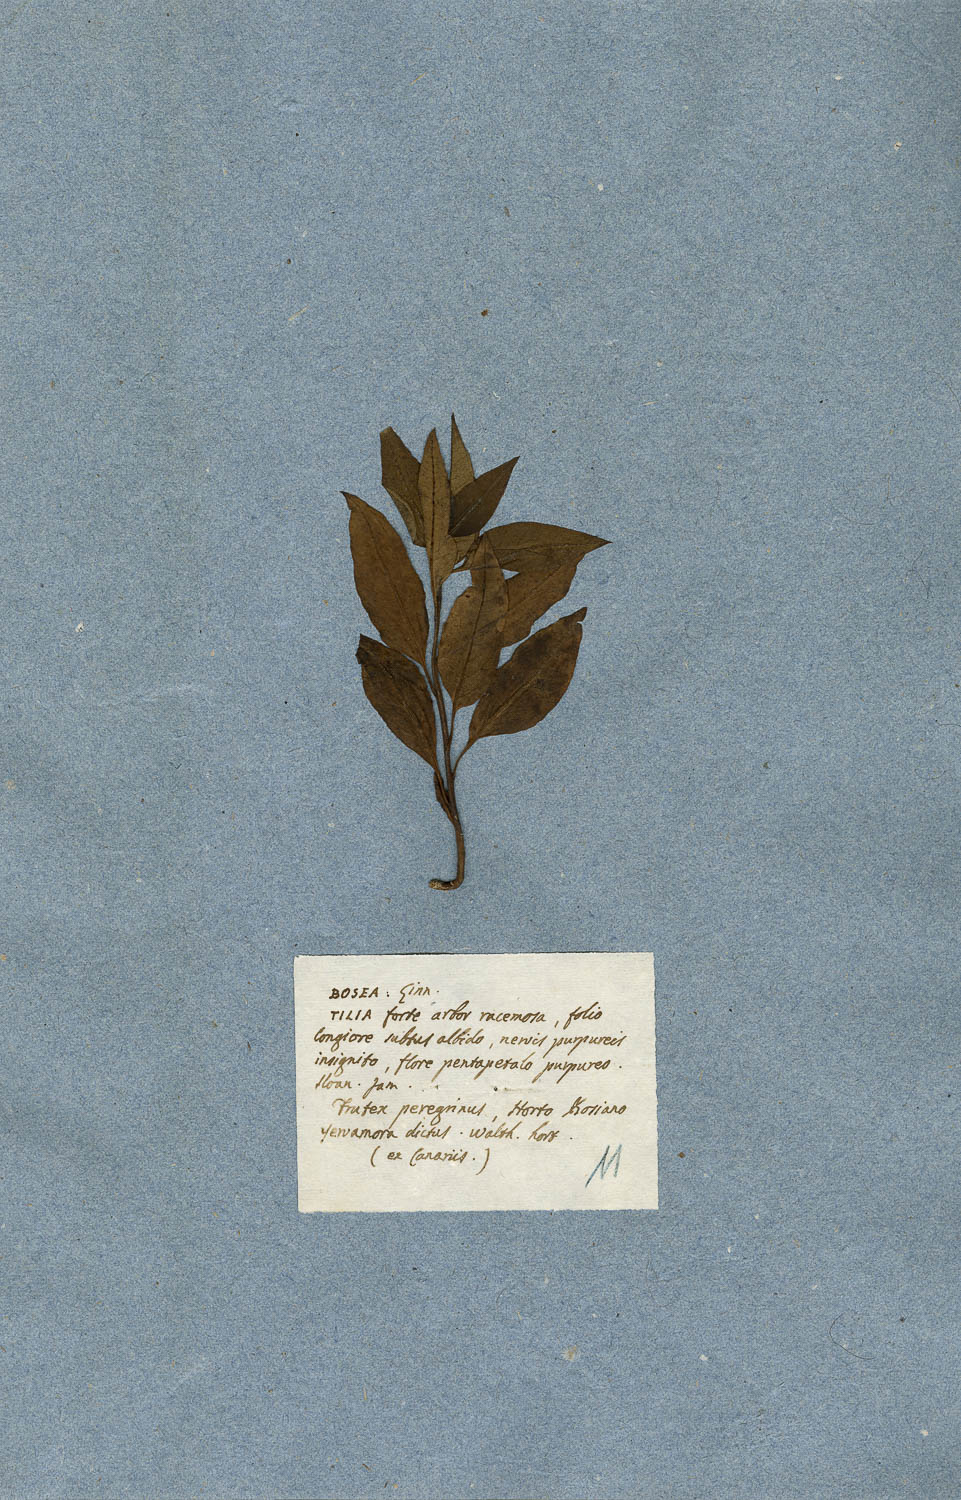 BOSEA : Linn.
TILIA forte arbor racemosa, folio
longiore subtus albido, nervis purpureis
insignito, flore pentapetalo purpureo.
Sloan. Jam. . . .
Frutex peregrinus, Horto Bosiano
Yervamora dictus. Walth. hort.
( ex Canariis. )
11